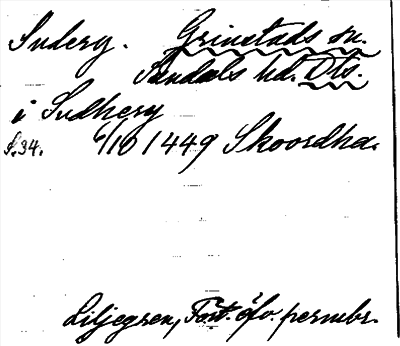 Suderg. Grinstads sn.
Sundals hd. Dls.
i Sudherg
S. 34. 6/10 1449 Skoordha.
Liljegren, Fört. öfv. permbr.